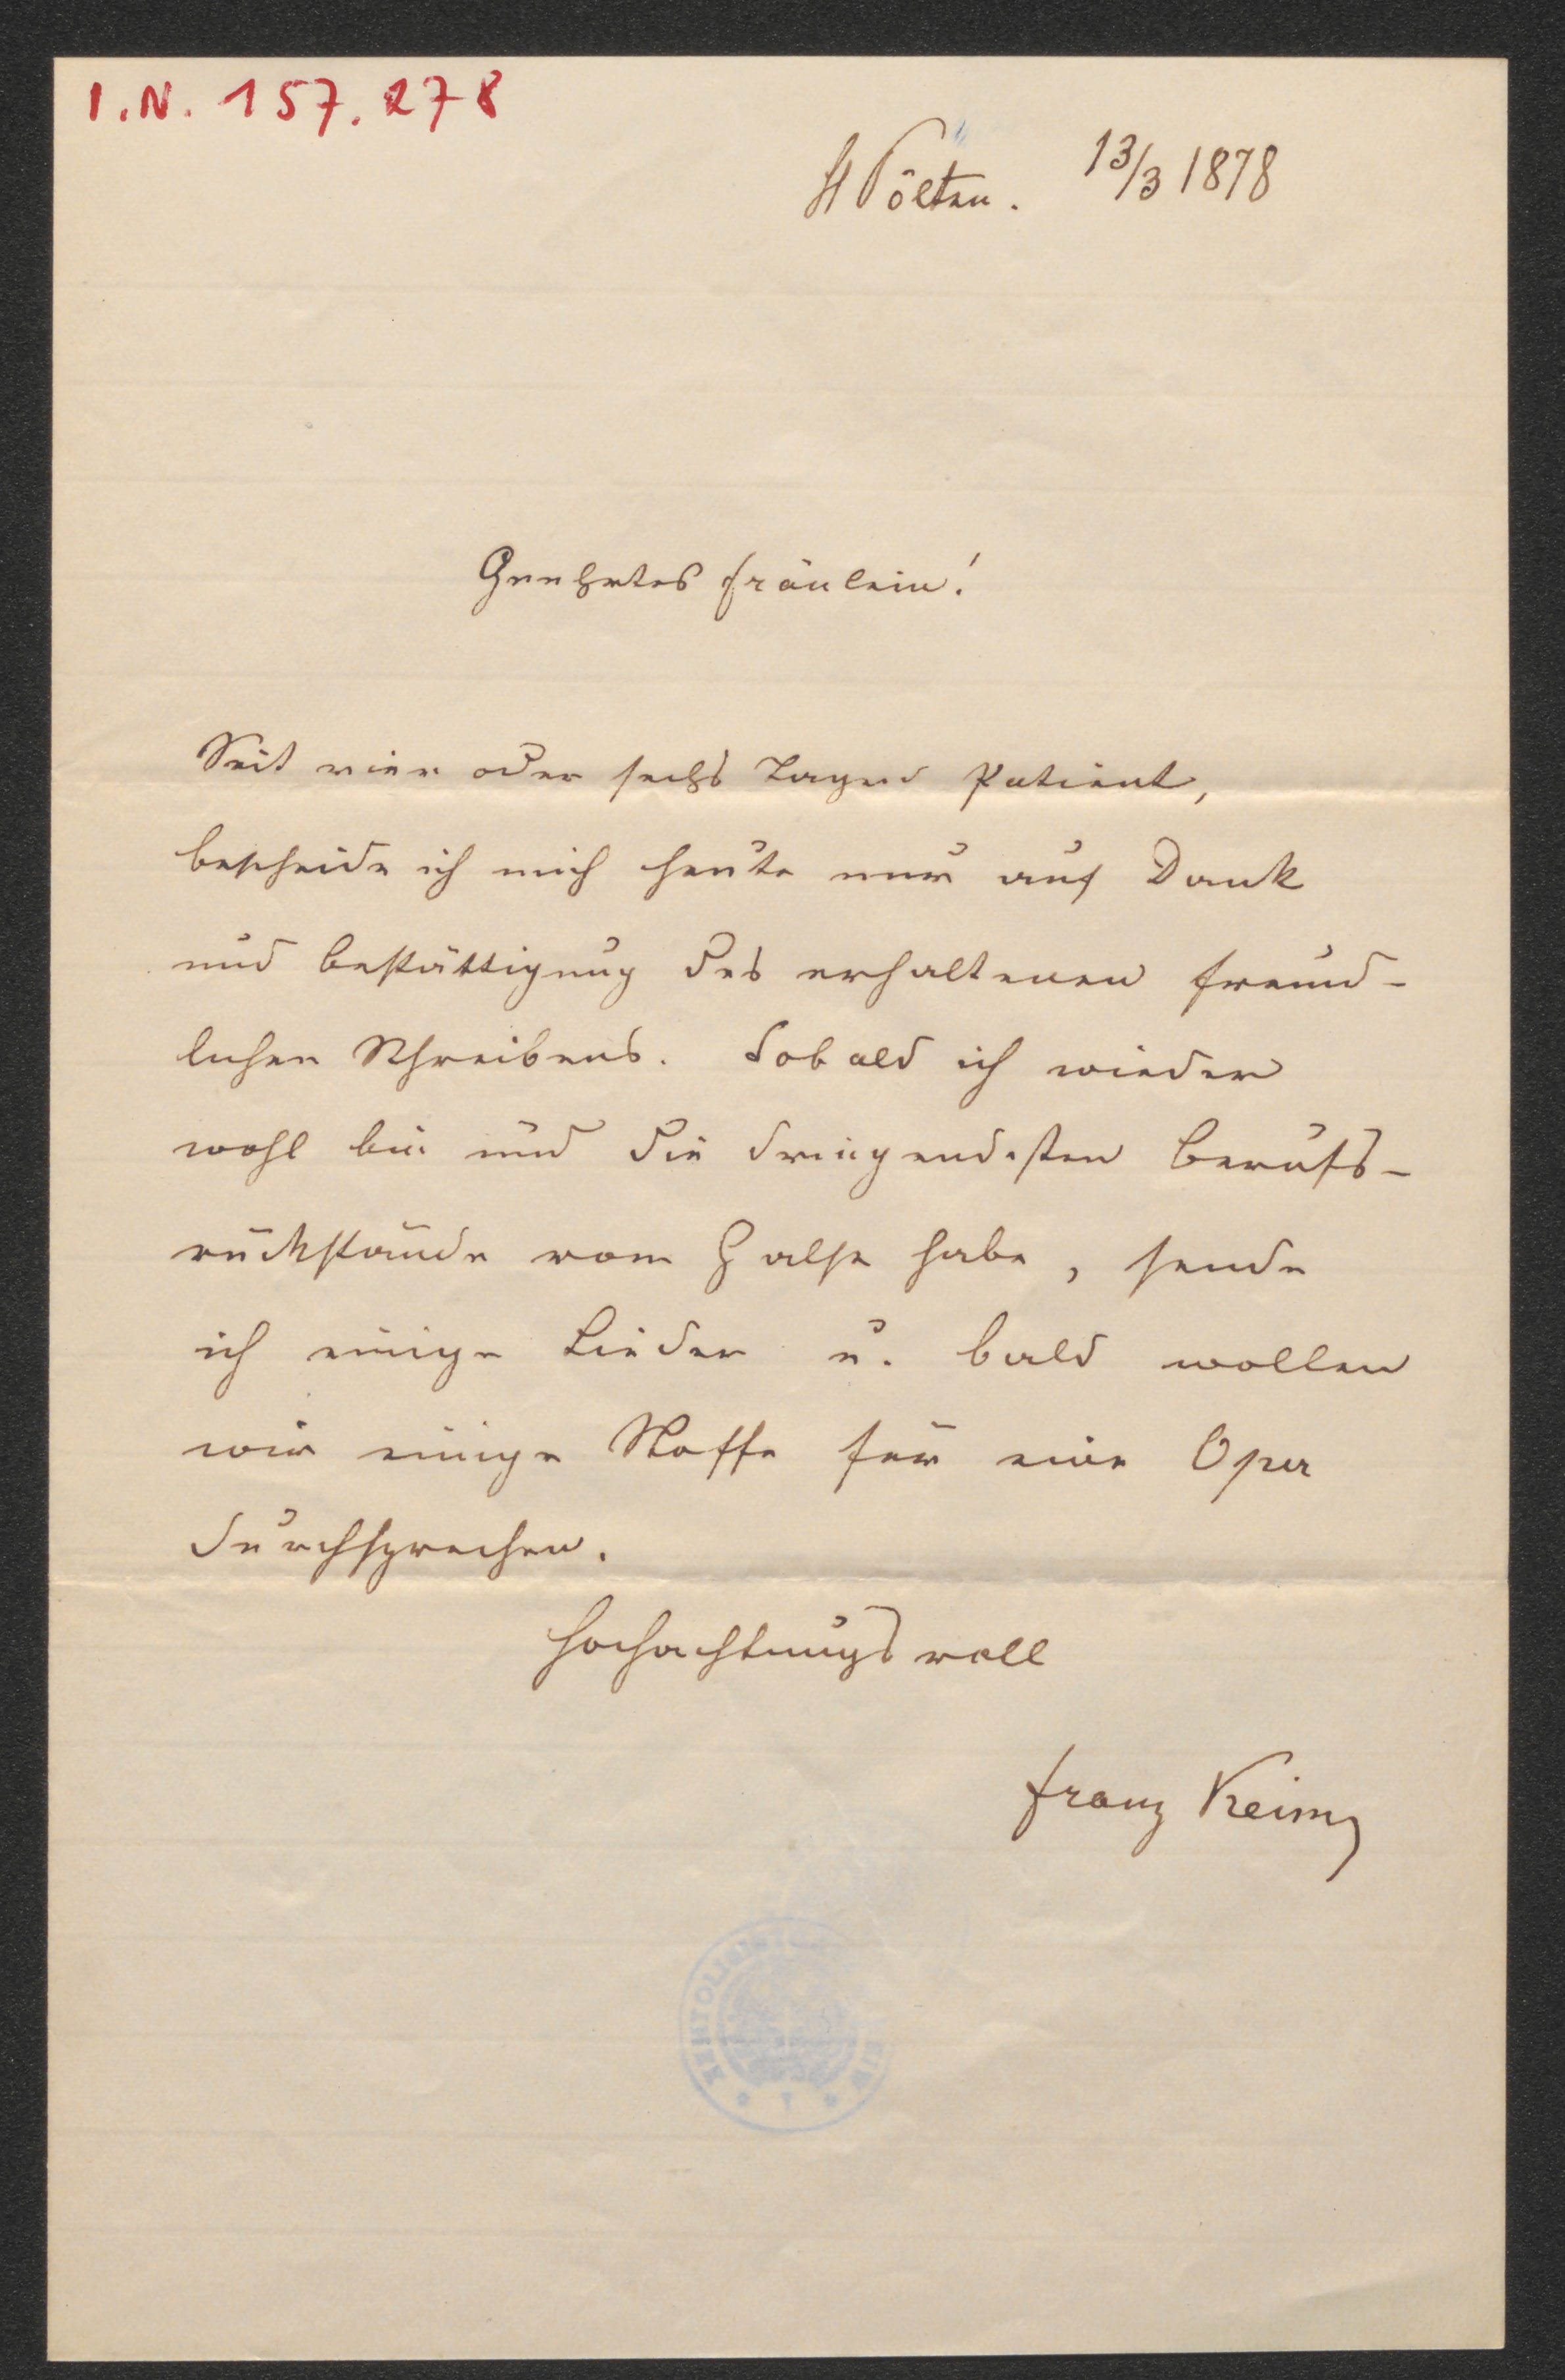 I.N. 157.278
St Pölten. 13/3 1878
Geehrtes Fräulein!
Seit vier oder sechs Tagen Patient,
bescheide ich mich heute nur auf Dank
und Bestättigung des erhaltenen freund-
lichen Schreibens. Sobald ich wieder
wohl bin und die dringendesten Berufs-
rückstände vom Halse habe, sende
ich einige Lieder u. bald wollen
wir einige Stoffe für eine Oper
durchsprechen.
Hochachtungsvoll
Franz Keim